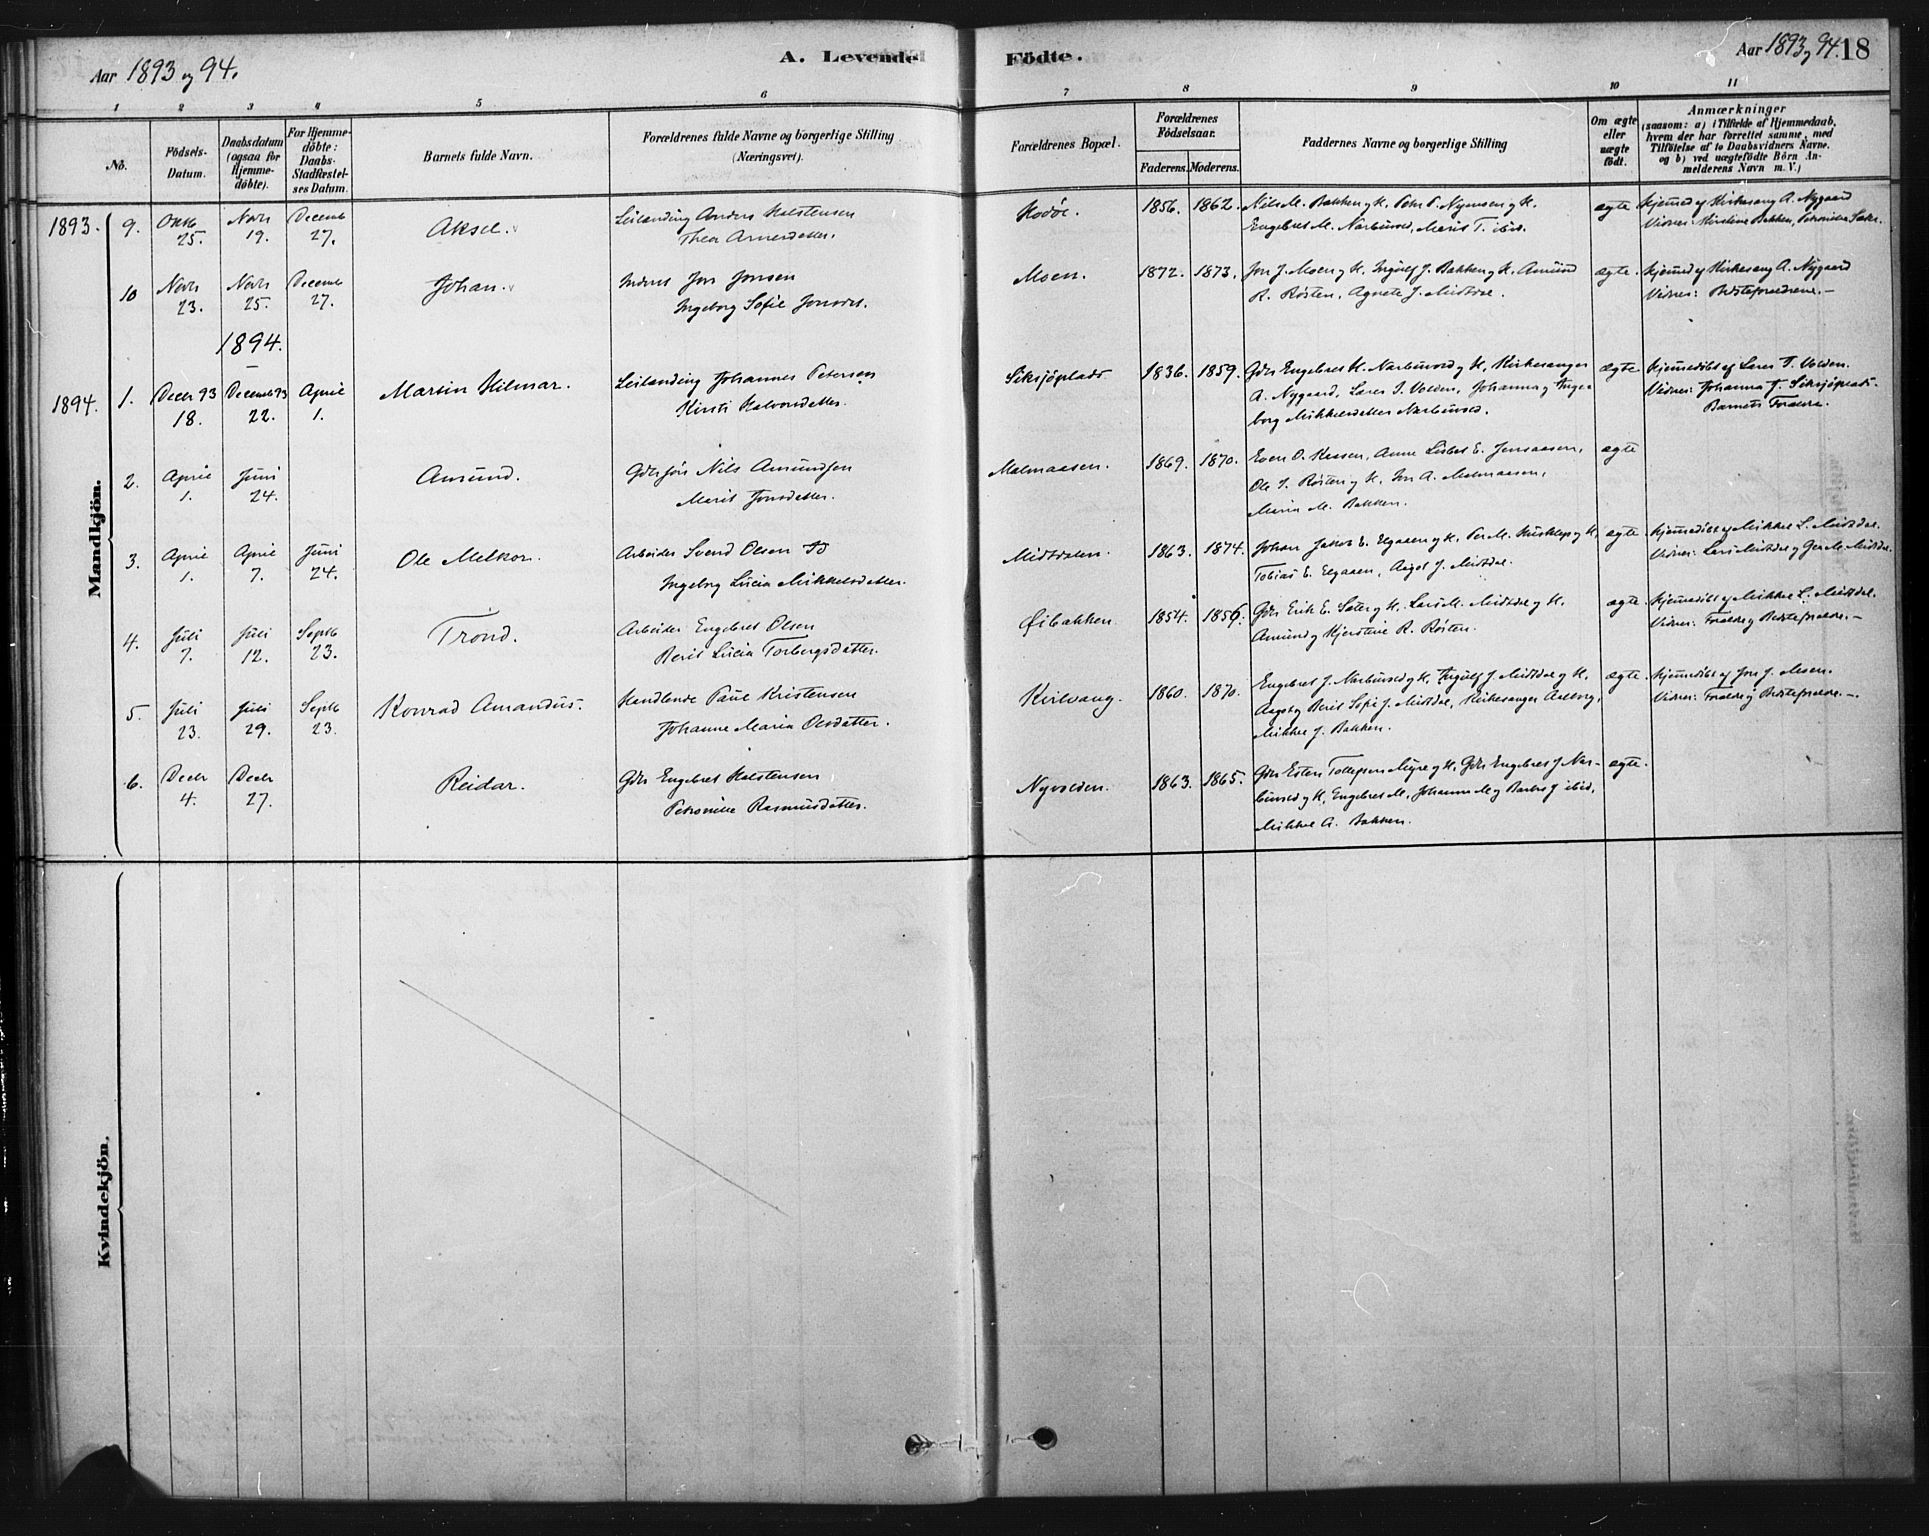 Aar 1893 og 94.
A. Levende Födte.
Aar 1893 og 94. 18
1 2 3 4 5 6 7 8 9 10 11
No.
Födsels-Datum.
Daabsdatum (ogsaa for Hjemme-döbte).
For Hjemme-döbte: Daabs-Stadfæstel-ses Datum.
Barnets fulde Navn.
Forældrenes fulde Navne og borgerlige Stilling (Næringsvei).
Forældrenes Bopæl.
Forældrenes Födselsaar.
Faderens. Moderens.
Faddernes Navne og borgerlige Stilling
Om ægte eller uægte födt.
Anmærkninger
(saasom: a) i Tilfælde af Hjemmedaab, hvem der har forrettet samme, med Tilföielse af to Daabsvidners Navne. og b) ved uægtefödte Börn An-melderens Navn m. V.)
Mandkjön.
1893. 9. Oktb 25. Novb 19. Decemb 27. Aksel.
Leilænding Anders Halstensen
Thea Arnesdatter.
1856. 1862.
Nils M. Bakken og H. Peter P. Nymoen og H.
Engebret M. Narbuvod, Marit T. ibid.
ægte
Hjemmed af Kirkesang A. Nygaard
10 Novb 23. Novb 25. Decemb 27. Johan.
Inderst Jon Jonsen
Ingeborg Sofie Jonsdt.
Moen. 1872. 1873.
Jon J. Moen og H. Ingulf J. Bakken og H. Amund
R. Røsten, Agnete J. Midtdal.
ægte.
Hjemmed af Kirkesang A. Nygaard
Vidner: Bedsteforældrene.
1894.
1894. 1. Decbr 93 18. Decemb 93 22. April 1. Martin Hilmar.
Leilænding Johannes Petersen
Kirsti Halvorsdatter.
Siksjöplads 1836. 1859.
Gdbr Engebret H. Narbuvod og H, Kirkesanger
A. Nygaard, Lars T. Volden, Johanna og Inge-
borg Mikkelsdatter Narbuvod.
ægte.
Hjemmedöbt af Lars T. Volden.
Vidner: Johanna J. Siksjöplads.
Barnets Forældre.
2. April 1. Juni 24. Amund.
Gdbrsøn Nils Amundsen
Marit Jonsdatter.
Malmaasen. 1869. 1870.
Ole J. Røsten og H. Jon A. Malmaasen,
Maria M. Bakken.
ægte
3. April 1. April 7. Juni 24. Ole Melkor.
Arbeider Svend Olsen
Ingeborg Lucia Mikkelsdatter.
Midtdalen. 1863. 1874.
Tobias E. Elgaaen, Aagot J. Midtdal.
ægte
Hjemmedöbt af Mikkel L. Midtdal.
4. Juli 7. Juli 12. Septb 23. Trond.
Arbeider Engebret Olsen
Berit Lucia Torbergsdatter.
Øibakken. 1854. 1856.
Gdbr Erik E. Sæter og H. Lars M. Midtdal og H.
Amund og Kjerstine R. Røsten.
ægte
Hjemmedöbt af Mikkel L. Midtdal.
Vidner: Forældre og Bedsteforældre.
5. Juli 23. Juli 29. Septb 23. Konrad Amandus.
Handlende Paul Kristensen
Johanne Maria Olsdatter.
Kvilvang. 1860. 1870.
Engebret J. Narbuvod og H. Ingulf J. Midtdal og H.
Mikkel J. Bakken.
ægte.
Hjemmedöbt af Jon J. Moen.
Vidner: Forældre og Bedsteforældre.
6. Decbr 4. Decbr 27. Reidar.
Gdbr Engebret Halstensen
Petronille Rasmusdatter.
Nyvolden. 1863. 1865.
Gdbr Esten Tollefsen Myre og H, Gdbr Engebret J Nar-
buvod og H, Engebret M, Johanne M og Barbro J ibid,
Mikkel A. Bakken.
ægte.
Kvindekjön.